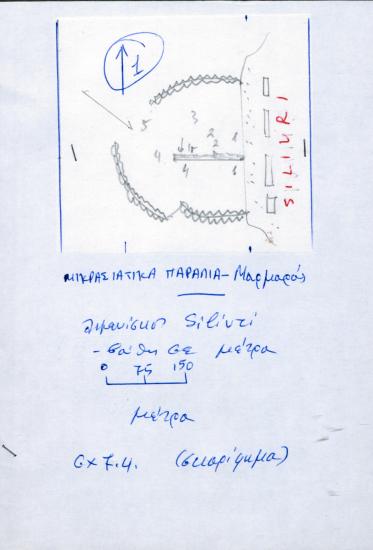 1
5
3
2
1
4
2
4
1
SILIURI
ΜΙΚΡΑΣΙΑΤΙΚΑ ΠΑΡΑΛΙΑ - Μαρμαράς
λιμενίσκος
- βάθη σε μέτρα
0 75 150
μέτρα
σχ 7.4. (σκαρίφημα)